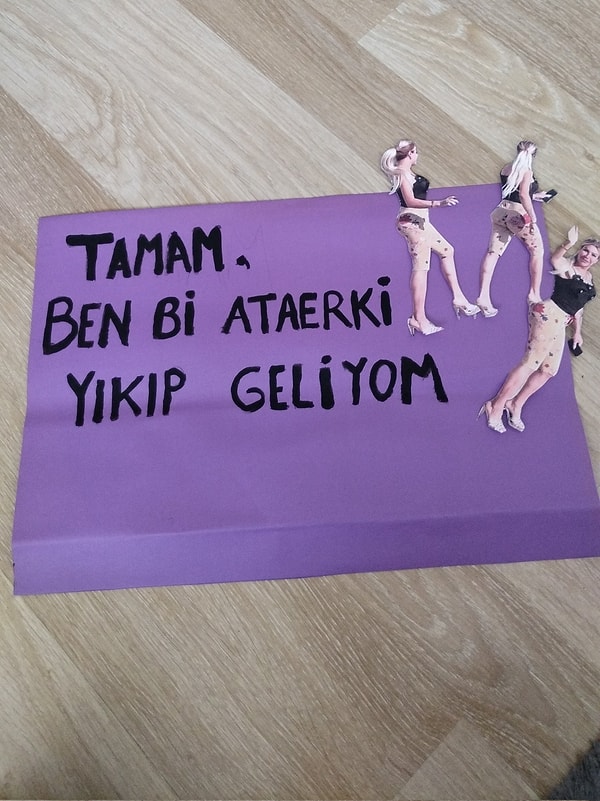 TAMAM.
BEN Bİ ATAERKİ
YIKIP GELİYOM